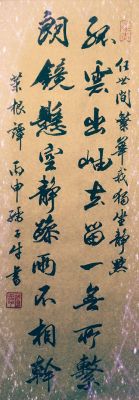 任世間繁華我獨坐靜默
孤雲出岫去留一無所繫
朗鏡懸空靜躁兩不相幹
菜根譚 丙申 書